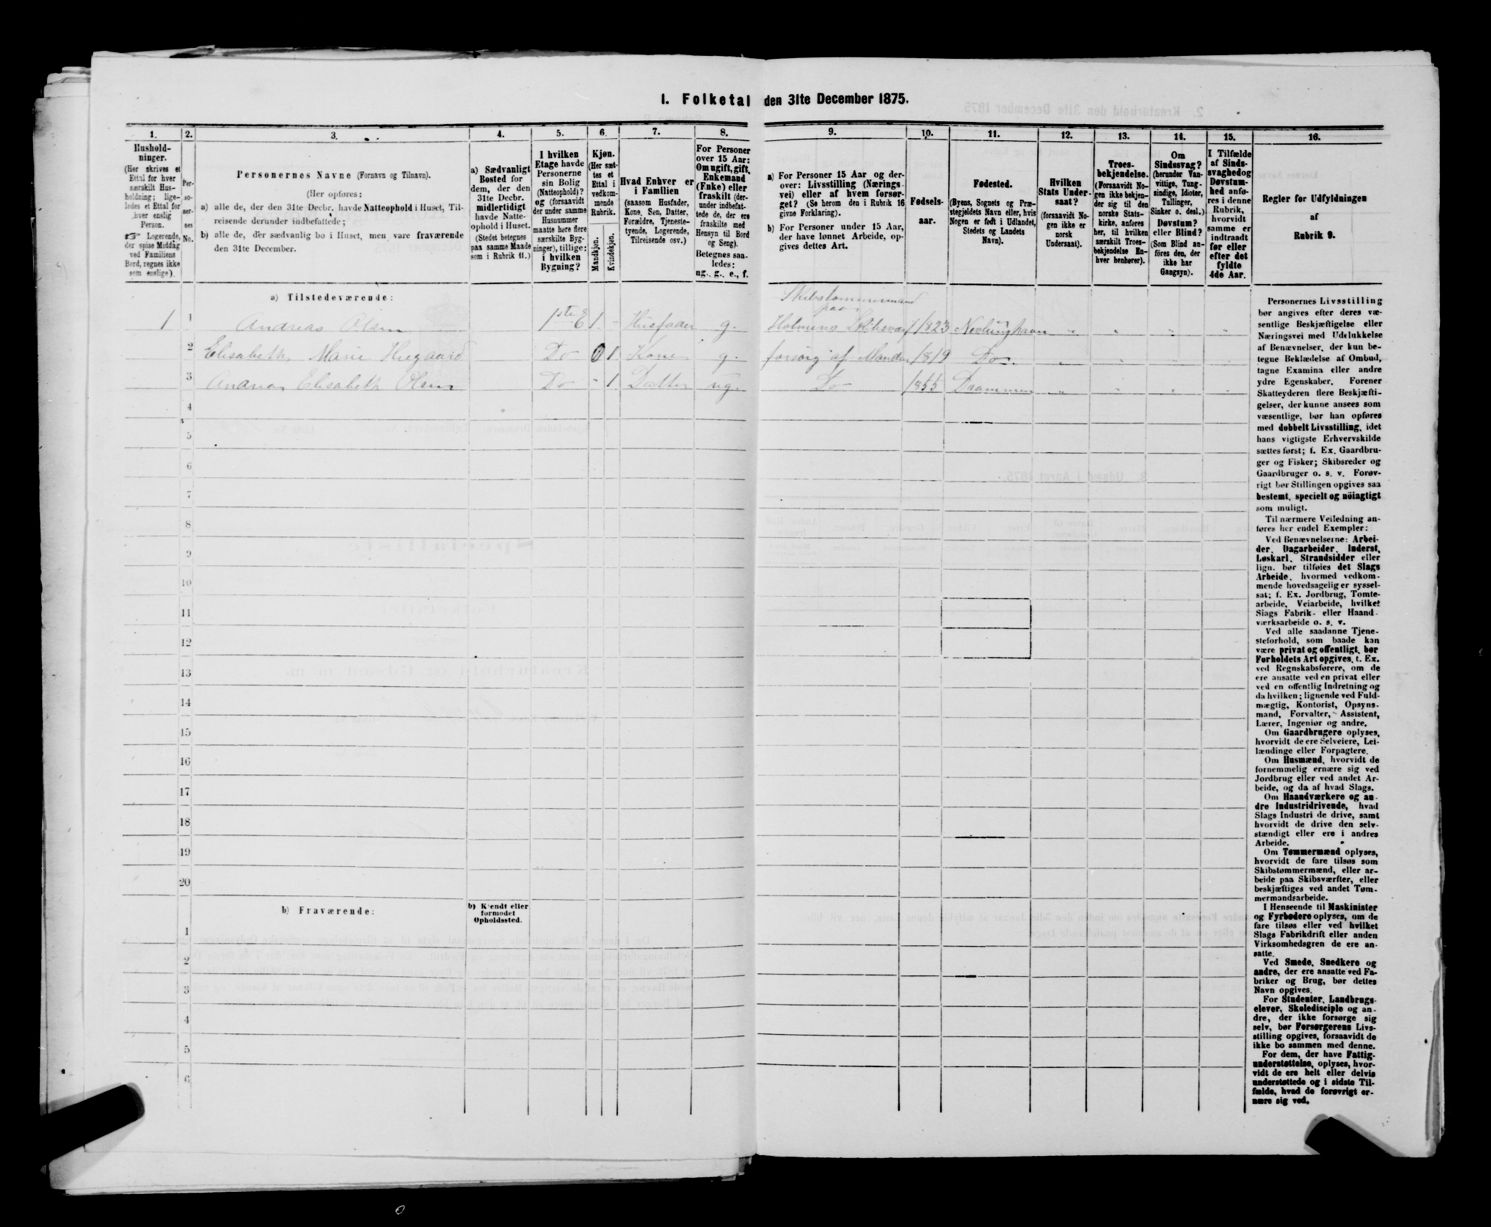 I. Folketal den 31te December 1875.
1.
2.
3.
4.
5.
6.
7.
8.
9.
10.
11.
12.
13.
14.
15.
16.
Hushold-
ninger.
(Her skrives et
Ettal for hver
særskilt Hus-
holdning; lige-
ledes et Ettal for
hver enslig
Person.
☞ Logerende,
der spise Middag
ved Familiens
Bord, regnes ikke
som enslige).
Per-
so-
ner-
nes
No.
Personernes Navne (Fornavn og Tilnavn).
(Her opføres:
a) alle de, der den 31te Decbr. havde Natteophold i Huset, Til-
reisende derunder indbefattede;
b) alle de, der sædvanlig bo i Huset, men vare fraværende
den 31te December.
a) Sædvanligt
Bosted for
dem, der den
31te Decbr.
midlertidigt
havde Natte-
ophold i Huset.
(Stedet betegnes
paa samme Maade
som i Rubrik 11.)
I hvilken
Etage havde
Personerne
sin Bolig
(Natteophold)?
og (forsaavidt
der under samme
Husnummer
maatte høre flere
særskilte Byg-
ninger), tillige:
i hvilken
Bygning?
Kjøn.
(Her sæt-
tes et
Ettal i
vedkom-
mende
Rubrik.
Mandkjøn.
Kvindekjøn.
Hvad Enhver er
i Familien
(saasom Husfader,
Kone, Søn, Datter,
Forældre, Tjeneste-
tyende, Logerende,
Tilreisende osv.)
For Personer
over 15 Aar:
Om ugift, gift,
Enkemand
(Enke) eller
fraskilt (der-
under indbefat-
tede de, der ere
fraskilte med
Hensyn til Bord
og Seng).
Betegnes saa-
ledes:
ug., g., e., f.
a) For Personer 15 Aar og der-
over: Livsstilling (Nærings-
vei) eller af hvem forsør-
get? (Se herom den i Rubrik 16
givne Forklaring).
b) For Personer under 15 Aar,
der have lønnet Arbeide, op-
gives dettes Art.
Fødsels-
aar.
Fødested.
(Byens, Sognets og Præ-
stegjeldets Navn eller, hvis
Nogen er født i Udlandet,
Stedets og Landets
Navn).
Hvilken
Stats Under-
saat?
(forsaavidt No-
gen ikke er
norsk
Undersaat).
Troes-
bekjendelse.
(Forsaavidt No-
gen ikke bekjen-
der sig til den
norske Stats-
kirke, anføres
her, til hvilken
særskilt Troes-
bekjendelse En-
hver henhører).
Om
Sindssvag?
(herunder Van-
vittige, Tung-
sindige, Idioter,
Tullinger,
Sinker o. desl.)
Døvstum?
eller Blind?
(Som Blind an-
føres den, der
ikke har
Gangsyn).
I Tilfælde
af Sinds-
svaghed og
Døvstum-
hed anfø-
res i denne
Rubrik,
hvorvidt
samme er
indtraadt
før eller
efter det
fyldte
4de Aar.
Regler for Udfyldningen
af
Rubrik 9.
a) Tilstedeværende:
Skibstømmermand
paa
1 1 Andreas Olsen 1ste E 1. - Husfader g. Holmens 1823 Nevlunghavn
2 Elisabeth Marie Do 0 1. Kone g. forsørg af Manden 1819 Do.
3 Andrea Elisabeth Olsen Do - 1. Datter ug. Do 1855 Drammen
4
5
6
7
8
9
10
11
12
13
14
15
16
17
18
19
20
b) Fraværende:
b) Kjendt eller
formodet
Opholdssted.
1
2
3
4
5
6
Personernes Livsstilling
bør angives efter deres væ-
sentlige Beskjæftigelse eller
Næringsvei med Udelukkelse
af Benævnelser, der kun be-
tegne Beklædelse af Ombud,
tagne Examina eller andre
ydre Egenskaber. Forener
Skatteyderen flere Beskjæfti-
gelser, der kunne ansees som
væsentlige, bør han opføres
med dobbelt Livsstilling, idet
hans vigtigste Erhvervskilde
sættes først; f. Ex. Gaardbru-
ger og Fisker; Skibsreder og
Gaardbruger o. s. v. Forøv-
rigt bør Stillingen opgives saa
bestemt, specielt og nöiagtigt
som muligt.
Til nærmere Veiledning an-
føres her endel Exempler:
Ved Benævnelserne: Arbei-
der, Dagarbeider, Inderst,
Løskarl, Strandsidder eller
lign. bør tilføies det Slags
Arbeide, hvormed vedkom-
mende hovedsagelig er syssel-
sat; f. Ex. Jordbrug, Tomte-
arbeide, Veiarbeide, hvilket
Slags Fabrik- eller Haand-
værksarbeide o. s. v.
Ved alle saadanne Tjene-
steforhold, som baade kan
være privat og offentligt, bør
Forholdets Art opgives, f. Ex.
ved Regnskabsførere, om de
ere ansatte ved en privat eller
ved en offentlig Indretning og
da hvilken; lignende ved Fuld-
mægtig, Kontorist, Opsyns-
mand, Forvalter, Assistent,
Lærer, Ingeniør og andre.
Om Gaardbrugere oplyses,
hvorvidt de ere Selveiere, Lei-
lændinge eller Forpagtere.
Om Husmænd, hvorvidt de
fornemmelig ernære sig ved
Jordbrug eller ved andet Ar-
beide, og da af hvad Slags.
Om Haandværkere og an-
dre Industridrivende, hvad
Slags Industri de drive, samt
hvorvidt de drive den selv-
stændigt eller ere i andres
Arbeide.
Om Tømmermænd oplyses,
hvorvidt de fare tilsøs som
Skibstømmermænd, eller ar-
beide paa Skibsværfter, eller
beskjæftiges ved andet Tøm-
mermandsarbeide.
I Henseende til Maskinister
og Fyrbødere oplyses, om de
fare tilsøs eller ved hvilket
Slags Fabrikdrift eller anden
Virksomhedsgren de ere an-
satte.
Ved Smede, Snedkere og
andre, der ere ansatte ved Fa-
briker og Brug, bør dettes
Navn opgives.
For Studenter, Landbrugs-
elever, Skoledisciple og an-
dre, der ikke forsørge sig
selv, bør Forsørgerens Livs-
stilling opgives, forsaavidt de
ikke bo sammen med denne.
For dem, der have Fattig-
understøttelse, oplyses, hvor-
vidt de ere helt eller delvis
understøttede og i sidste Til-
fælde, hvad de forøvrigt er-
nære sig ved.